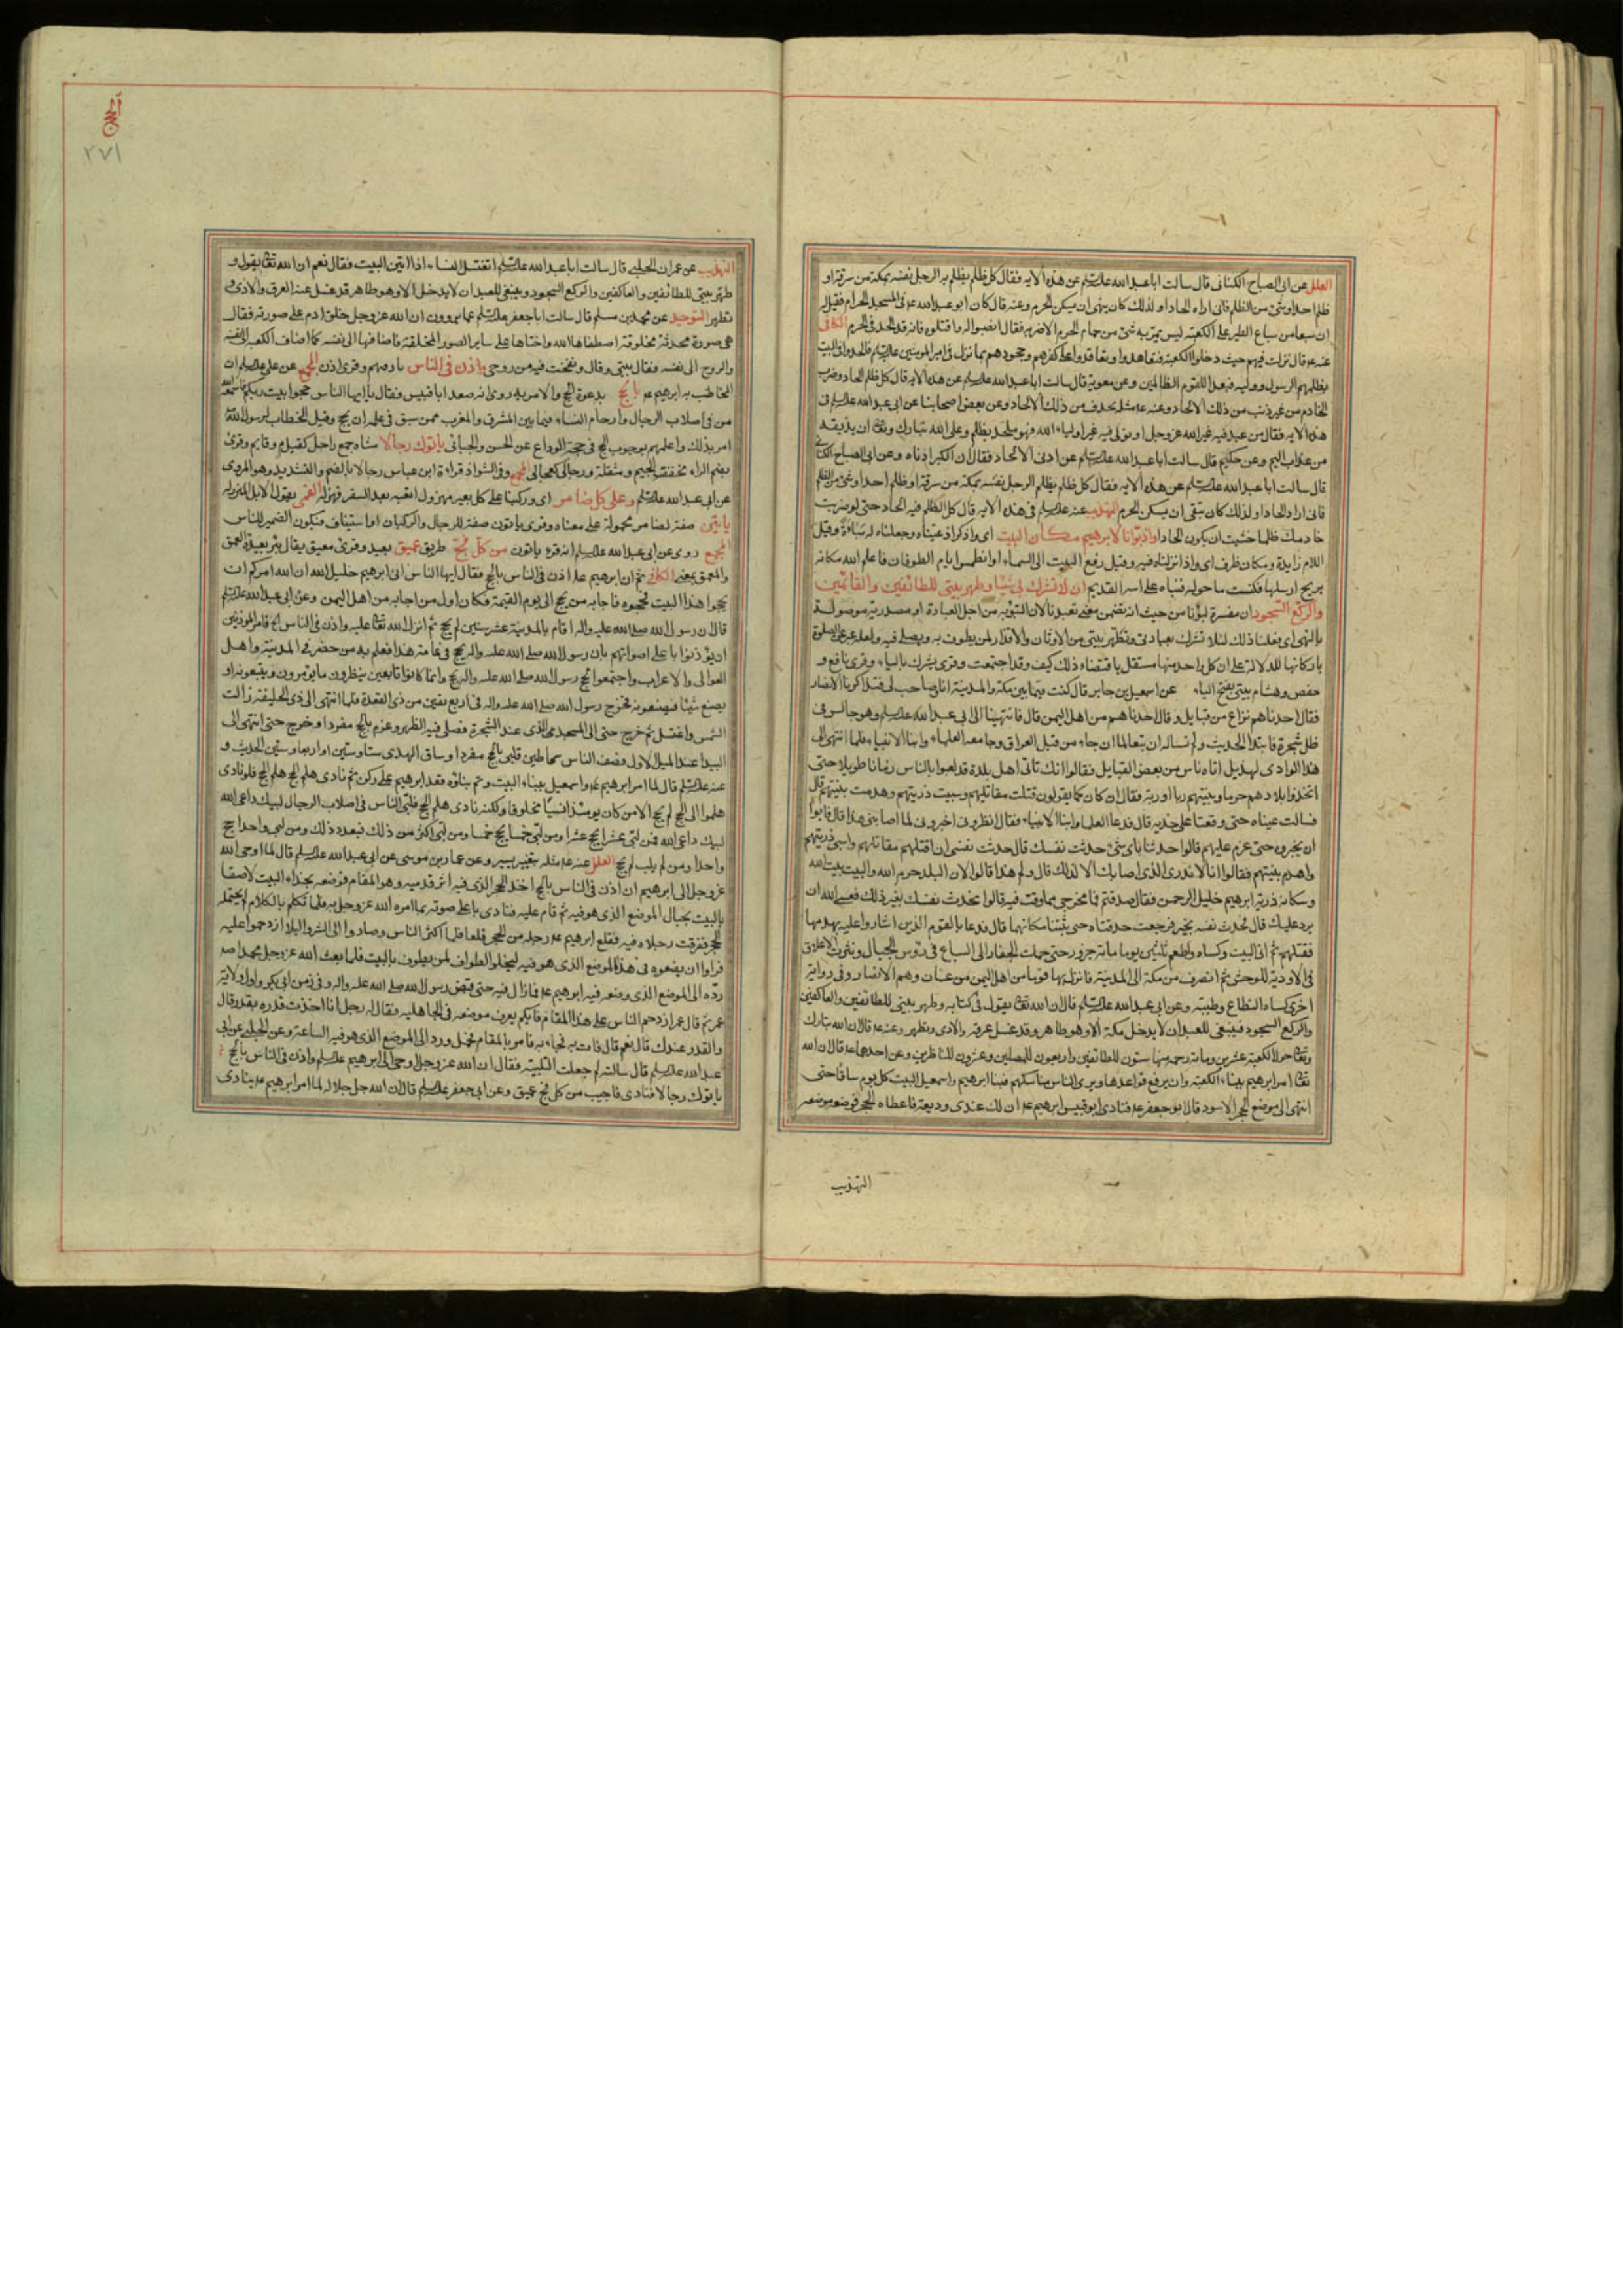 العلل عن ابى الصباح الكنانى قال سالت ابا عبد الله علیه السلم عن هذه الايه فقال كل ظلم يظلم به الرجل نفسه بمكة من سرقة او
ظلم احد او شئ من الظلم فانى اراه الحادا ولذلك كان ينهى ان يسكن الحرم وعنه قال كان ابو عبد الله عه فى المسجد الحرام فقيل له
ان سبعا من سباع الطير على الكعبة ليس يمر به شئ من حمام الحرم الا ضربه فقال انصبوا له واقتلوه فانه قد الحد فى الحرم الكافى
عنه عه قال نزلت فيهم حيث دخلوا الكعبة فتعاهدوا وتعاقدوا على كفرهم وجحودهم بما نزل فى امير المومنين علیه السلم فالحدوا فى البيت
بظلمهم الرسول ووليه فبعدا للقوم الظالمين وعن معوية قال سالت ابا عبد الله علیه السلم عن هذه الايه قال كل ظلم الحاد وضرب
الخادم من غير ذنب من ذلك الالحاد وعنه عه مثله بحذف من ذلك الالحاد وعن بعض اصحابنا عن ابى عبد الله علیه السلم فى
هذه الايه فقال من عبد فيه غير الله عز وجل او تولى فيه غير اولياء الله فهو ملحد بظلم وعلى الله تبارك وتعالى ان يذيقه
من عذاب اليم وعن حكيم قال سالت ابا عبد الله علیه السلم عن ادنى الالحاد فقال ان الكبر ادناه وعن ابى الصباح الكنانى
قال سالت ابا عبد الله علیه السلم عن هذه الايه فقال كل ظلم يظلم الرجل نفسه بمكة من سرقة او ظلم احد او شئ من الظلم
فانى اراه الحادا ولذلك كان يتقى ان يسكن الحرم التهذيب عنه علیه السلم فى هذه الايه قال كل الظلم فيه الحاد حتى لو ضربت
خادمك ظلما خشيت ان يكون الحادا واذ بوأنا لابرهيم مكان البيت اى واذكر اذ عيناه وجعلناه له مباءة وقيل
اللام زايدة ومكان ظرف اى واذ انزلناه فيه وقيل رفع البيت الى السماء او انطمس ايام الطوفان فاعلم الله مكانه
بريح ارسلها فكنست ما حوله فبناه على اسه القديم ان لا تشرك بى شيئا وطهر بيتى للطائفين والقائمين
والركع السجود ان مفسرة لبوّأنا من حيث انه تضمن معنى تعبدنا لان التبوئة من اجل العبادة او مصدرية موصولة
بالنهى اى فعلنا ذلك لئلا تشرك بعبادتى وتطهر بيتى من الاوثان والاقذار لمن يطوف به ويصلى فيه ولعله عبر عن الصلوة
باركانها للدلالة على ان كل واحد منها مستقل باقتضاء ذلك كيف وقد اجتمعت وقرئ يشرك بالياء وقرئ نافع و
حفص وهشام بيتى بفتح الياء عن اسمعيل بن جابر قال كنت فيما بين مكة والمدينة انا وصاحب لى فتذاكرنا الانصار
فقال احدنا هم نزاع من قبايل وقال احدنا هم من اهل اليمن قال فانتهينا الى ابى عبد الله علیه السلم وهو جالس فى
ظل شجرة فابتدا الحديث ولم نساله ان تبعا لما ان جاء من قبل العراق وجاء معه العلماء وابناء الانبياء فلما انتهى الى
هذا الوادى لهذيل اتاه ناس من بعض القبايل فقالوا انك تاتى اهل بلدة قد لعبوا بالناس زمانا طويلا حتى
اتخذوا بلادهم حرما وبنيتهم ربا او ربة فقال ان كان كما يقولون قتلت مقاتليهم وسبيت ذريتهم وهدمت بنيتهم قال
فسالت عيناه حتى وقعتا على خديه قال فدعا العلما وابنا الانبياء فقال انظرونى اخبرونى لما اصابنى هذا قال فابوا
ان يخبروه حتى عزم عليهم قالوا حدثنا باى شئ حدثت نفسك قال حدثت نفسى ان اقتلهم مقاتلهم واسبى ذريتهم
واهدم بنيتهم فقالوا انا لا ندرى الذى اصابك الا لذلك قال ولم هذا قالوا لان البلد حرم الله والبيت بيت الله
وسكانه ذرية ابرهيم خليل الرحمن فقال صدقتم فما مخرجى مما وقعت فيه قالوا تحدث نفسك بغير ذلك فعسى الله ان
يرد عليك قال فحدث نفسه بخير فرجعت حدقتاه حتى ثبتتا مكانهما قال فدعا بالقوم الذين اشاروا عليه بهدمها
فقتلهم ثم اتى البيت وكساه واطعم ثلثين يوما مائة جزور حتى حملت الجفان الى السباع فى رؤس الجبال ونثرت الاعلاق
فى الاودية للوحش ثم انصرف من مكة الى المدينة فانزل بها قوما من اهل اليمن من غسان وهم الانصار وفى رواية
اخرى كساه النطاع وطيبه وعن ابى عبد الله علیه السلم قال ان الله تعالى يقول فى كتابه وطهر بيتى للطائفين والعاكفين
والركع السجود فينبغى للعبد ان لا يدخل مكة الا وهو طاهر وقد غسل عرقه والاذى وتطهر وعنه عه قال ان الله تبارك
وتعالى حول الكعبة عشرين ومائة رحمة منها ستون للطائفين واربعون للمصلين وعشرون للناظرين وعن احدهما عه قال ان الله
تعالى امر ابرهيم ببناء الكعبة وان يرفع قواعدها ويرى الناس مناسكهم فبنا ابرهيم واسمعيل البيت كل يوم ساقا حتى
انتهى الى موضع الحجر الاسود قال ابو جعفر عه فنادى ابو قبيس ابرهيم عه ان لك عندى وديعة فاعطاه الحجر فوضعه موضعه
التهذيب
الحج
٢٧١
التهذيب عن عمران الحلبى قال سالت ابا عبد الله علیه السلم اتغتسل النساء اذا اتين البيت فقال نعم ان الله تعالى يقول و
طهر بيتى للطائفين والعاكفين والركع السجود وينبغى للعبد ان لا يدخل الا وهو طاهر قد غسل عنه العرق والاذى و
تطهر التوحيد عن محمد بن مسلم قال سالت ابا جعفر علیه السلم عما يروون ان الله عز وجل خلق ادم على صورته فقال
هى صورة محدثة مخلوقة اصطفاها الله واختارها على ساير الصور المختلفة فاضافها الى نفسه كما اضاف الكعبة الى نفسه
والروح الى نفسه فقال بيتى وقال ونفخت فيه من روحى واذن فى الناس نادهم وقرئ اذن المجمع عن على علیه السلم ان
المخاطب به ابرهيم عه بالحج بدعوة الحج والامر به روى انه صعد ابا قبيس فقال يا ايها الناس حجوا بيت ربكم فاسمعه الله
من فى اصلاب الرجال وارحام النساء فيما بين المشرق والمغرب ممن سبق فى علمه ان يحج وقيل الخطاب لرسول الله
امر بذلك واعلمهم بوجوب الحج فى حجة الوداع عن الحسن والجبائى يأتوك رجالا مشاة جمع راجل كقيام وقايم وقرئ
بضم الراء مخففة الجيم ومثقلة ورجالى كعجالى المجمع وفى الشواذ قراءة ابن عباس رجالا بالضم والتشديد وهو المروى
عن ابى عبد الله علیه السلم وعلى كل ضامر اى وركبانا على كل بعير مهزول اتعبه بعد السفر فهزله القمى يقول الابل المهزوله
ياتين صفة لضامر محمولة على معناه وقرئ ياتون صفة للرجال والركبان او استيناف فيكون الضمير للناس
المجمع روى عن ابى عبد الله علیه السلم انه قرء ياتون من كل فج طريق عميق بعيد وقرئ معيق يقال بئر بعيدة العمق
والمعق بمعنى الكافى ثم ان ابرهيم عه اذن فى الناس بالحج فقال ايها الناس انى ابرهيم خليل الله ان الله امركم ان
تحجوا هذا البيت فحجوه فاجابه من يحج الى يوم القيمة فكان اول من اجابه من اهل اليمن وعن ابى عبد الله علیه السلم
قال ان رسول الله صلى الله عليه واله اقام بالمدينة عشر سنين لم يحج ثم انزل الله تعالى عليه واذن فى الناس الخ فامر المؤذنين
ان يؤذنوا باعلى اصواتهم بان رسول الله صلى الله عليه واله يحج فى عامه هذا فعلم به من حضر فى المدينة واهل
العوالى والاعراب واجتمعوا لحج رسول الله صلى الله عليه واله وانما كانوا تابعين ينظرون ما يؤمرون ويتبعونه او
يصنع شيئا فيصنعونه فخرج رسول الله صلى الله عليه واله فى اربع بقين من ذى القعدة فلما انتهى الى ذى الحليفة زالت
الشمس واغتسل ثم خرج حتى الى المسجد الذى عند الشجرة فصلى فيه الظهر وعزم بالحج مفردا وخرج حتى انتهى الى
البيداء عند الميل الاول فصف الناس سماطين فلبى بالحج مفردا وساق الهدى ستا وستين او اربعا وستين الحديث و
عنه علیه السلم قال لما امر ابرهيم عه واسمعيل ببناء البيت وتم بناؤه قعد ابرهيم على ركن ثم نادى هلم الحج هلم الحج فلو نادى
هلموا الى الحج لم يحج الا من كان يومئذ انسيا مخلوقا ولكنه نادى هلم الحج فلبى الناس فى اصلاب الرجال لبيك داعى الله
لبيك داعى الله فمن لبى عشرا يحج عشرا ومن لبى خمسا يحج خمسا ومن لبى اكثر من ذلك فبعدد ذلك ومن لبى واحدا حج
واحدا ومن لم يلب لم يحج العلل عنه عه مثله بتغيير يسير وعن عمار بن موسى عن ابى عبد الله علیه السلم قال لما اوحى الله
عز وجل الى ابرهيم ان اذن فى الناس بالحج اخذ الحجر الذى فيه اثر قدميه وهو المقام فوضعه بحذاء البيت لاصقا
بالبيت بحيال الموضع الذى هو فيه ثم قام عليه فنادى باعلى صوته بما امره الله عز وجل به فلما تكلم بالكلام لم يحتمله
الحجر فغرقت رجلاه فيه فقلع ابرهيم عه رجله من الحجر قلعا فلما اكثر الناس وصاروا الى الشر والبلاء ازدحموا عليه
فراوا ان يضعوه فى هذا الموضع الذى هو فيه ليخلو الطواف لمن يطوف بالبيت فلما بعث الله عز وجل محمدا صه
رده الى الموضع الذى وضعه فيه ابرهيم عه فما زال فيه حتى قبض رسول الله صلى الله عليه واله وفى زمن ابى بكر واول ولاية
عمر ثم قال عمر ازدحم الناس على هذا المقام فايكم يعرف موضعه فى الجاهليه فقال له رجل انا اخذت قدره بقدر قال
والقدر عندك قال نعم قال فات به فجاء به فامر بالمقام فحمل ورد الى الموضع الذى هو فيه الساعة وعن الحلبى عن ابى
عبد الله علیه السلم قال سالته لم جعلت التلبية فقال ان الله عز وجل اوحى الى ابرهيم علیه السلم واذن فى الناس بالحج
ياتوك رجالا فنادى فاجيب من كل فج عميق وعن ابى جعفر علیه السلم قال ان الله جل جلاله لما امر ابرهيم عه ينادى